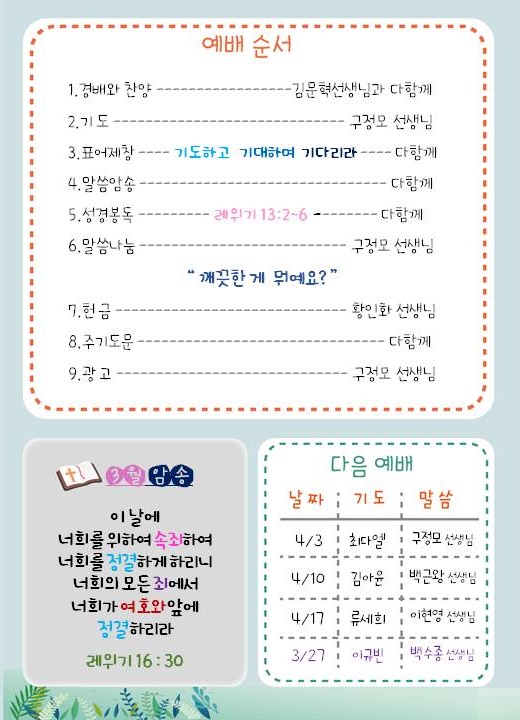 예배 순서
1.경배와 찬양 ------------------김문혁선생님과 다함께
2.기 도 ------------------------------- 구정모 선생님
3.표어제창---- 기도하고 기대하며 기다리라 ---- 다함께
4.말씀암송 ---------------------------------- 다함께
5.성경봉독 ---------- 레위기 13:2~6 --------- 다함께
6.말씀나눔 ----------------------------- 구정모 선생님
“ 깨끗한 게 뭐예요?”
7.헌 금 ------------------------------- 황인화 선생님
8.주기도문 ------------------------------------ 다함께
9.광 고 ------------------------------- 구정모 선생님
3월암송
이 날에
너희를 위하여 속죄하여
너희를 정결하게 하리니
너희의 모든 죄에서
너희가 여호와 앞에
정결하리라
레위기 16 : 30
다음 예배
날 짜 기 도 말 씀
4/3 최다엘 구정모 선생님
4/10 김아윤 백근왕 선생님
4/17 류세희 이현영 선생님
3/27 이규빈 백수종 선생님